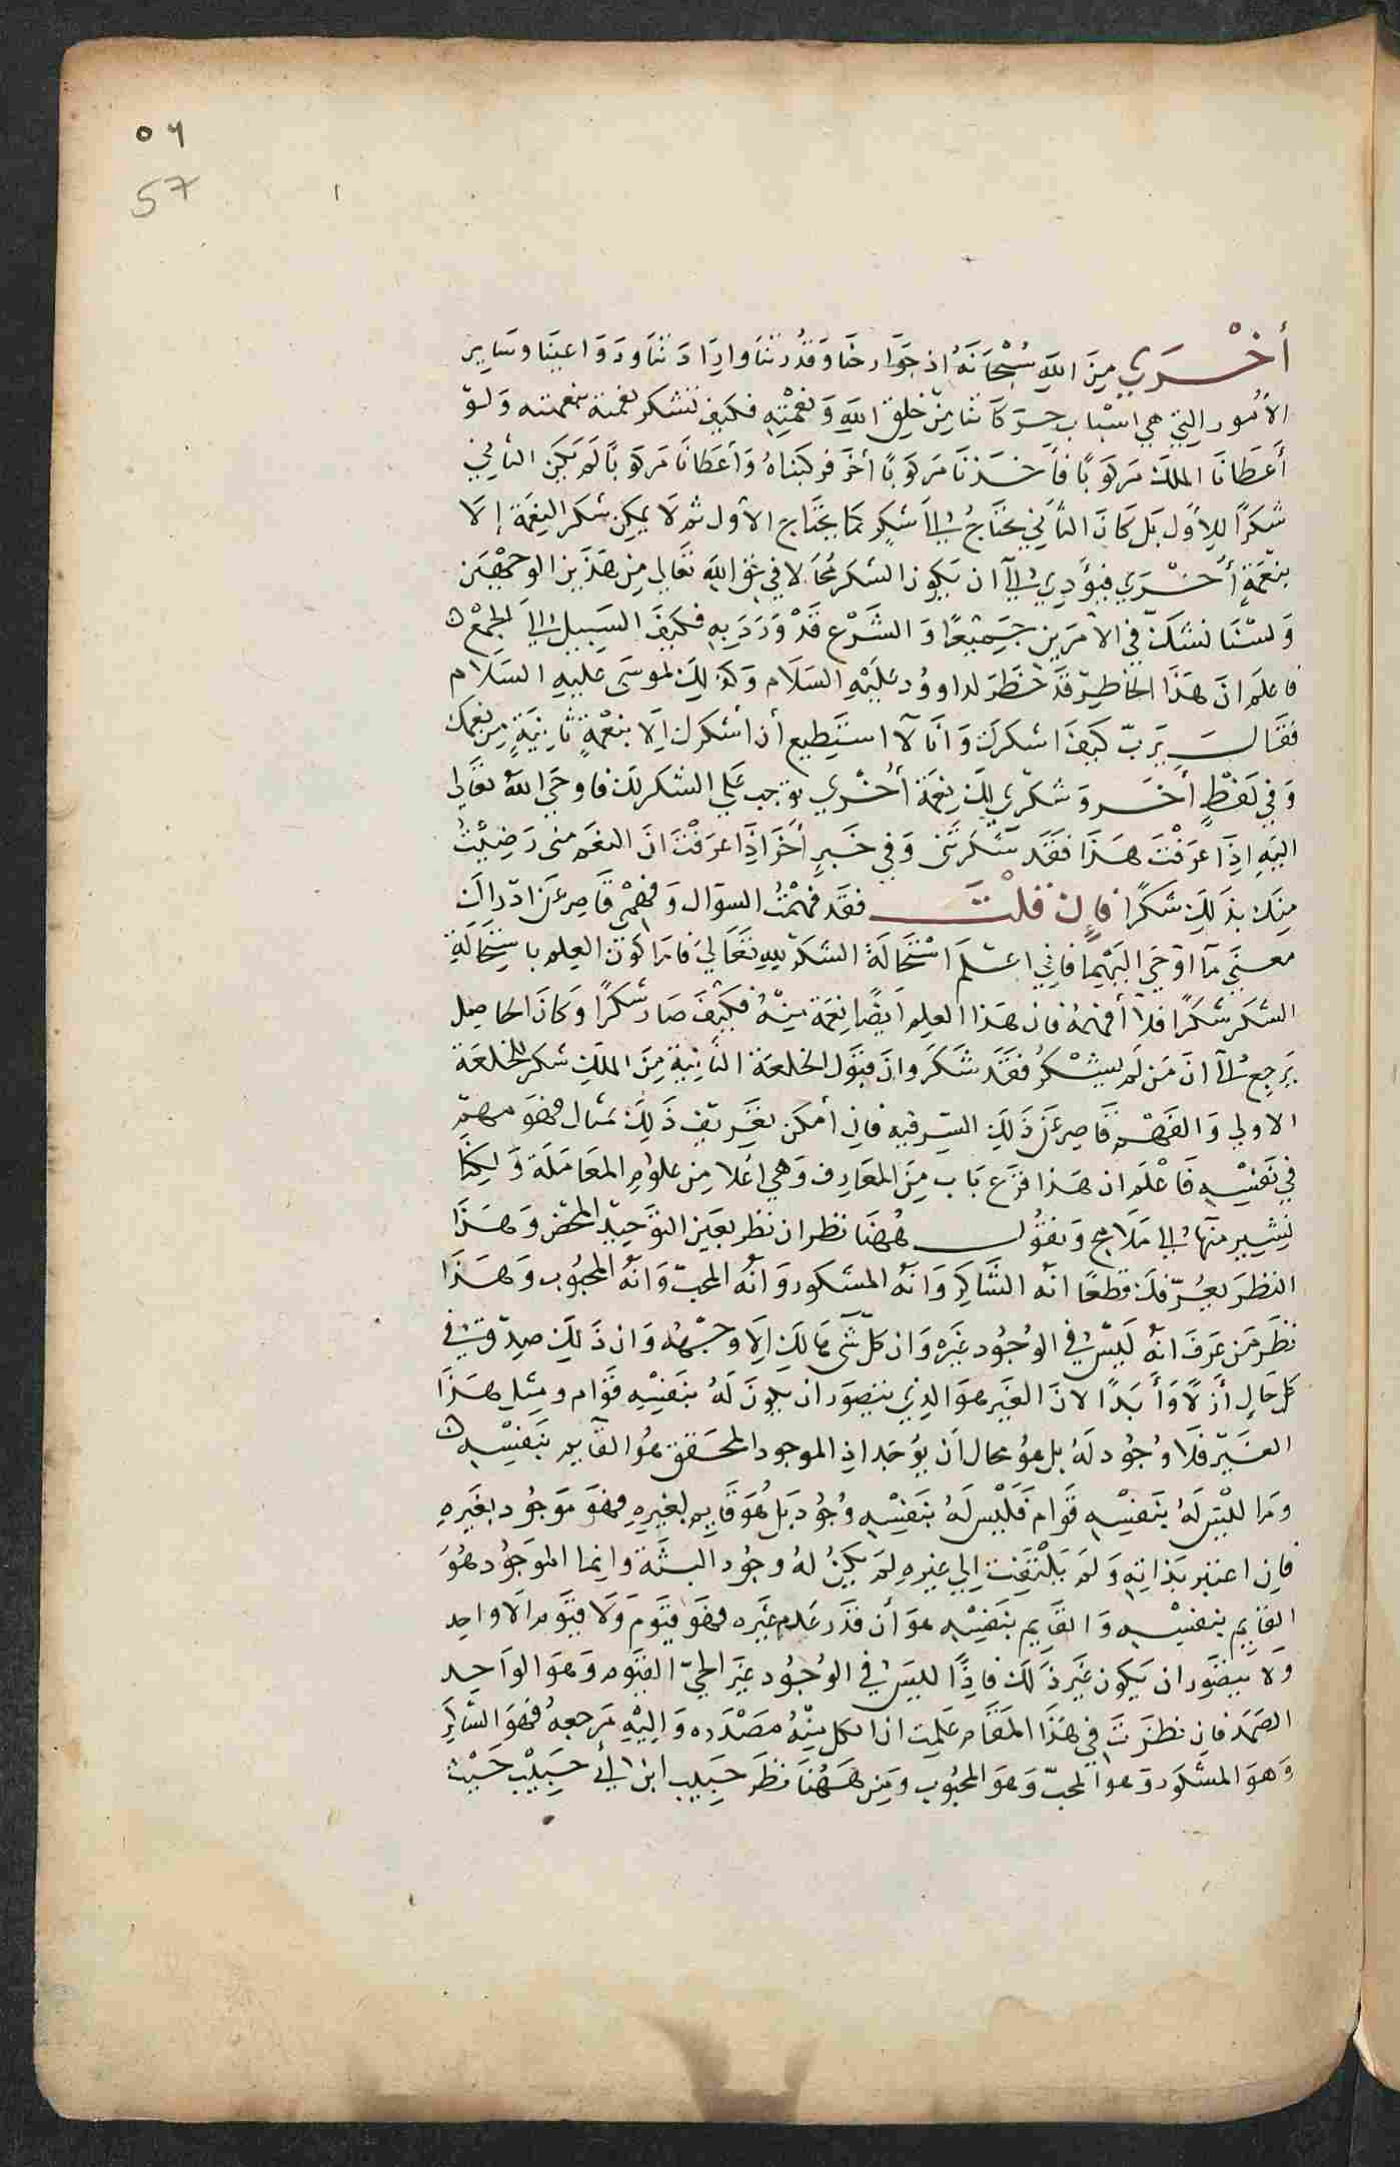 ٥٦
57
أخْرَي مِنَ اللهِ سُبْحَانَهُ اذ جوَارحنَا وَقدُرتنَا وارَادَتنَا ودَوَاعينَا وسَايِر
الأمُور التِي هي أسْبَاب حرَكَاتنَا مِنْ خلِق اللهِ وَنعمْتِهِ فكيَف نشكر نعمته بنعمته وَلوْ
أعَطانَا الملك مَركوَبًا فأخذنَا مَركوَبًا أخرَ فركبَناهُ وَأعَطانَا مَركوَبًا لَم يَكِن الثانِي
شكرًا للِأوَل بَل كَانَ الثَانِي يحتَاجُ إليَ شكِر كمَا يحتَاج الأوَل ثم لَا يمكِن شكر النِعَمة إلَا
بنعَمةٍ أُخْرَي فيؤَدِي إليَ ان يَكوِن الشكر مُحَالا في حَق اللهِ تعَالي مِن هَذَين الوجهَين
وَلسْنَا نشكّ في الأمرَين جَميْعًا وَالشَرْع قَدْ وَرَدَ بِهِ فكيَفَ السَبِيل إليَ الجمْع ه
فاعلَم انَ هَذَا الخاطِر قدَ خطَرَ لداووُد علَيْهِ السَلَام وَكذَلِكَ لموسَى عليهِ السَلام
فقَالَ يَرَبّ كيَفَ اشكرَك وَانَا لآ استَطِيع أن أشكرك إلَا بنعْمةٍ ثانِيَةٍ مِن نعمك
وَفي لَفظٍ أخَر وَشكْرِي لَكَ نِعمَة أُخْرَي توَجب عَلي الشكر لَك فاوحَي اللهُ تعَالي
اليَهِ اذَا عرَفْتَ هَذَا فَقَد شكَرتَنى وَفي خَبرٍ أخَرَ اذَا عرَفْتَ انَ النعَم منى رَضِيْتُ
مِنَك بذَلَكَ شكرًا فإن قلْتَ فقَد فهمْتُ السوَال وَفهمِي قاصِر عَن ادرَاك
معنَي مَآ اوَحَي اليَهما فاني اعلَم اسْتحَالَة الشكر لِلهِ تعَالي فامَا كوَن العِلم باسِتحَالَةِ
الشكر شكرًا فلاَ أفهمهُ فان هَذا العلم أيضًا نِعمَة مِنْهُ فكيَفَ صَار شكرًا وَكانَ الحَاصِل
يَرجع إليَ انَ مَن لَم يَشْكُر فقَد شَكَر وانَ قبَول الخلعَة الثانِيةِ مِنَ الملِك شكر للخلعَة
الاولي وَالفَهْم قَاصِر عَن ذَلِكَ السِر فيِه فان أمكَن تعَريَف ذَلِكَ بمثَال فهوَ مهمّ
في نَفسِهِ فَاعْلَم ان هَذا قرَع بَاب مِنَ المعَارِف وَهي اعَلا مِن علوْمِ المعَامَلَة وَلكِنَا
نشِير منَها إلي مَلَامِح وَنقوُل هُهنَا نظران نظر بعَين التوَحيِد المحَض وَهَذَا
النظَر يعُرّفَك قطعًا انَه الشَاكِر وَانَه المشكور وَانَه المحبّ وَانَهُ المحبُوب وَهَذَا
نظَر مَن عَرَفَ انَهُ لَيْسَ في الوجُوُد غيَره وَان كلّ شَىٍ هَالِك إلَا وجْهُه وَان ذَلِكَ صِدْق في
كل حَالٍ أَزلًا وَأَبَدًا لانَ الغيَر هوَ الذِي يتَصَوَر ان يكوَنَ لَهُ بنَفسِهِ قوَام ومثِل هَذَا
الغيَر فلَا وجُوُد لَهُ بل هوُ محال أن يوُجَد اذِ الموجود المحَقق هوُ القآيم بنَفسِهِ ه
ومَا ليْسَ لَهُ بنَفسِهِ قوَام فَليْسَ لَهُ بنَفسِهِ وُجُود بَل هُوَ قَايم بغيِرهِ فهوَ مَوَجُود بغيَرهِ
فان اعتبر بذَاتِهِ وَلَم يَلْتَفِت إلي غيِرهِ لَم يَكنُ لَهُ وجُود البتَة وانِما الموَجُود هُوَ
القَايم بنفسِهِ وَالقَايم بنَفسِهِ هوَ أن قدَر عدَم غيَره فهوَ قيوَم وَلَا قيوَم الَا واحِد
ولا يتَصَوَر ان يَكون غيَر ذَلَك فاذًا ليَسَ في الوُجُود غيَر الحيّ القيَوم وَهوَ الوَاحِد
الصَمَد فان نظرَتَ في هَذَا المَقَام عَلمِت ان الكل مِنْهُ مَصْدَره وَاليْهِ مَرجعهُ فهوَ الشاكِر
وَهوَ المشكوَر وَهوَ المحبّ وَهوَ المحبُوب ومِن هَهُنَا نظَر حَبِيب ابن أبي حَبِيْب حَيْث